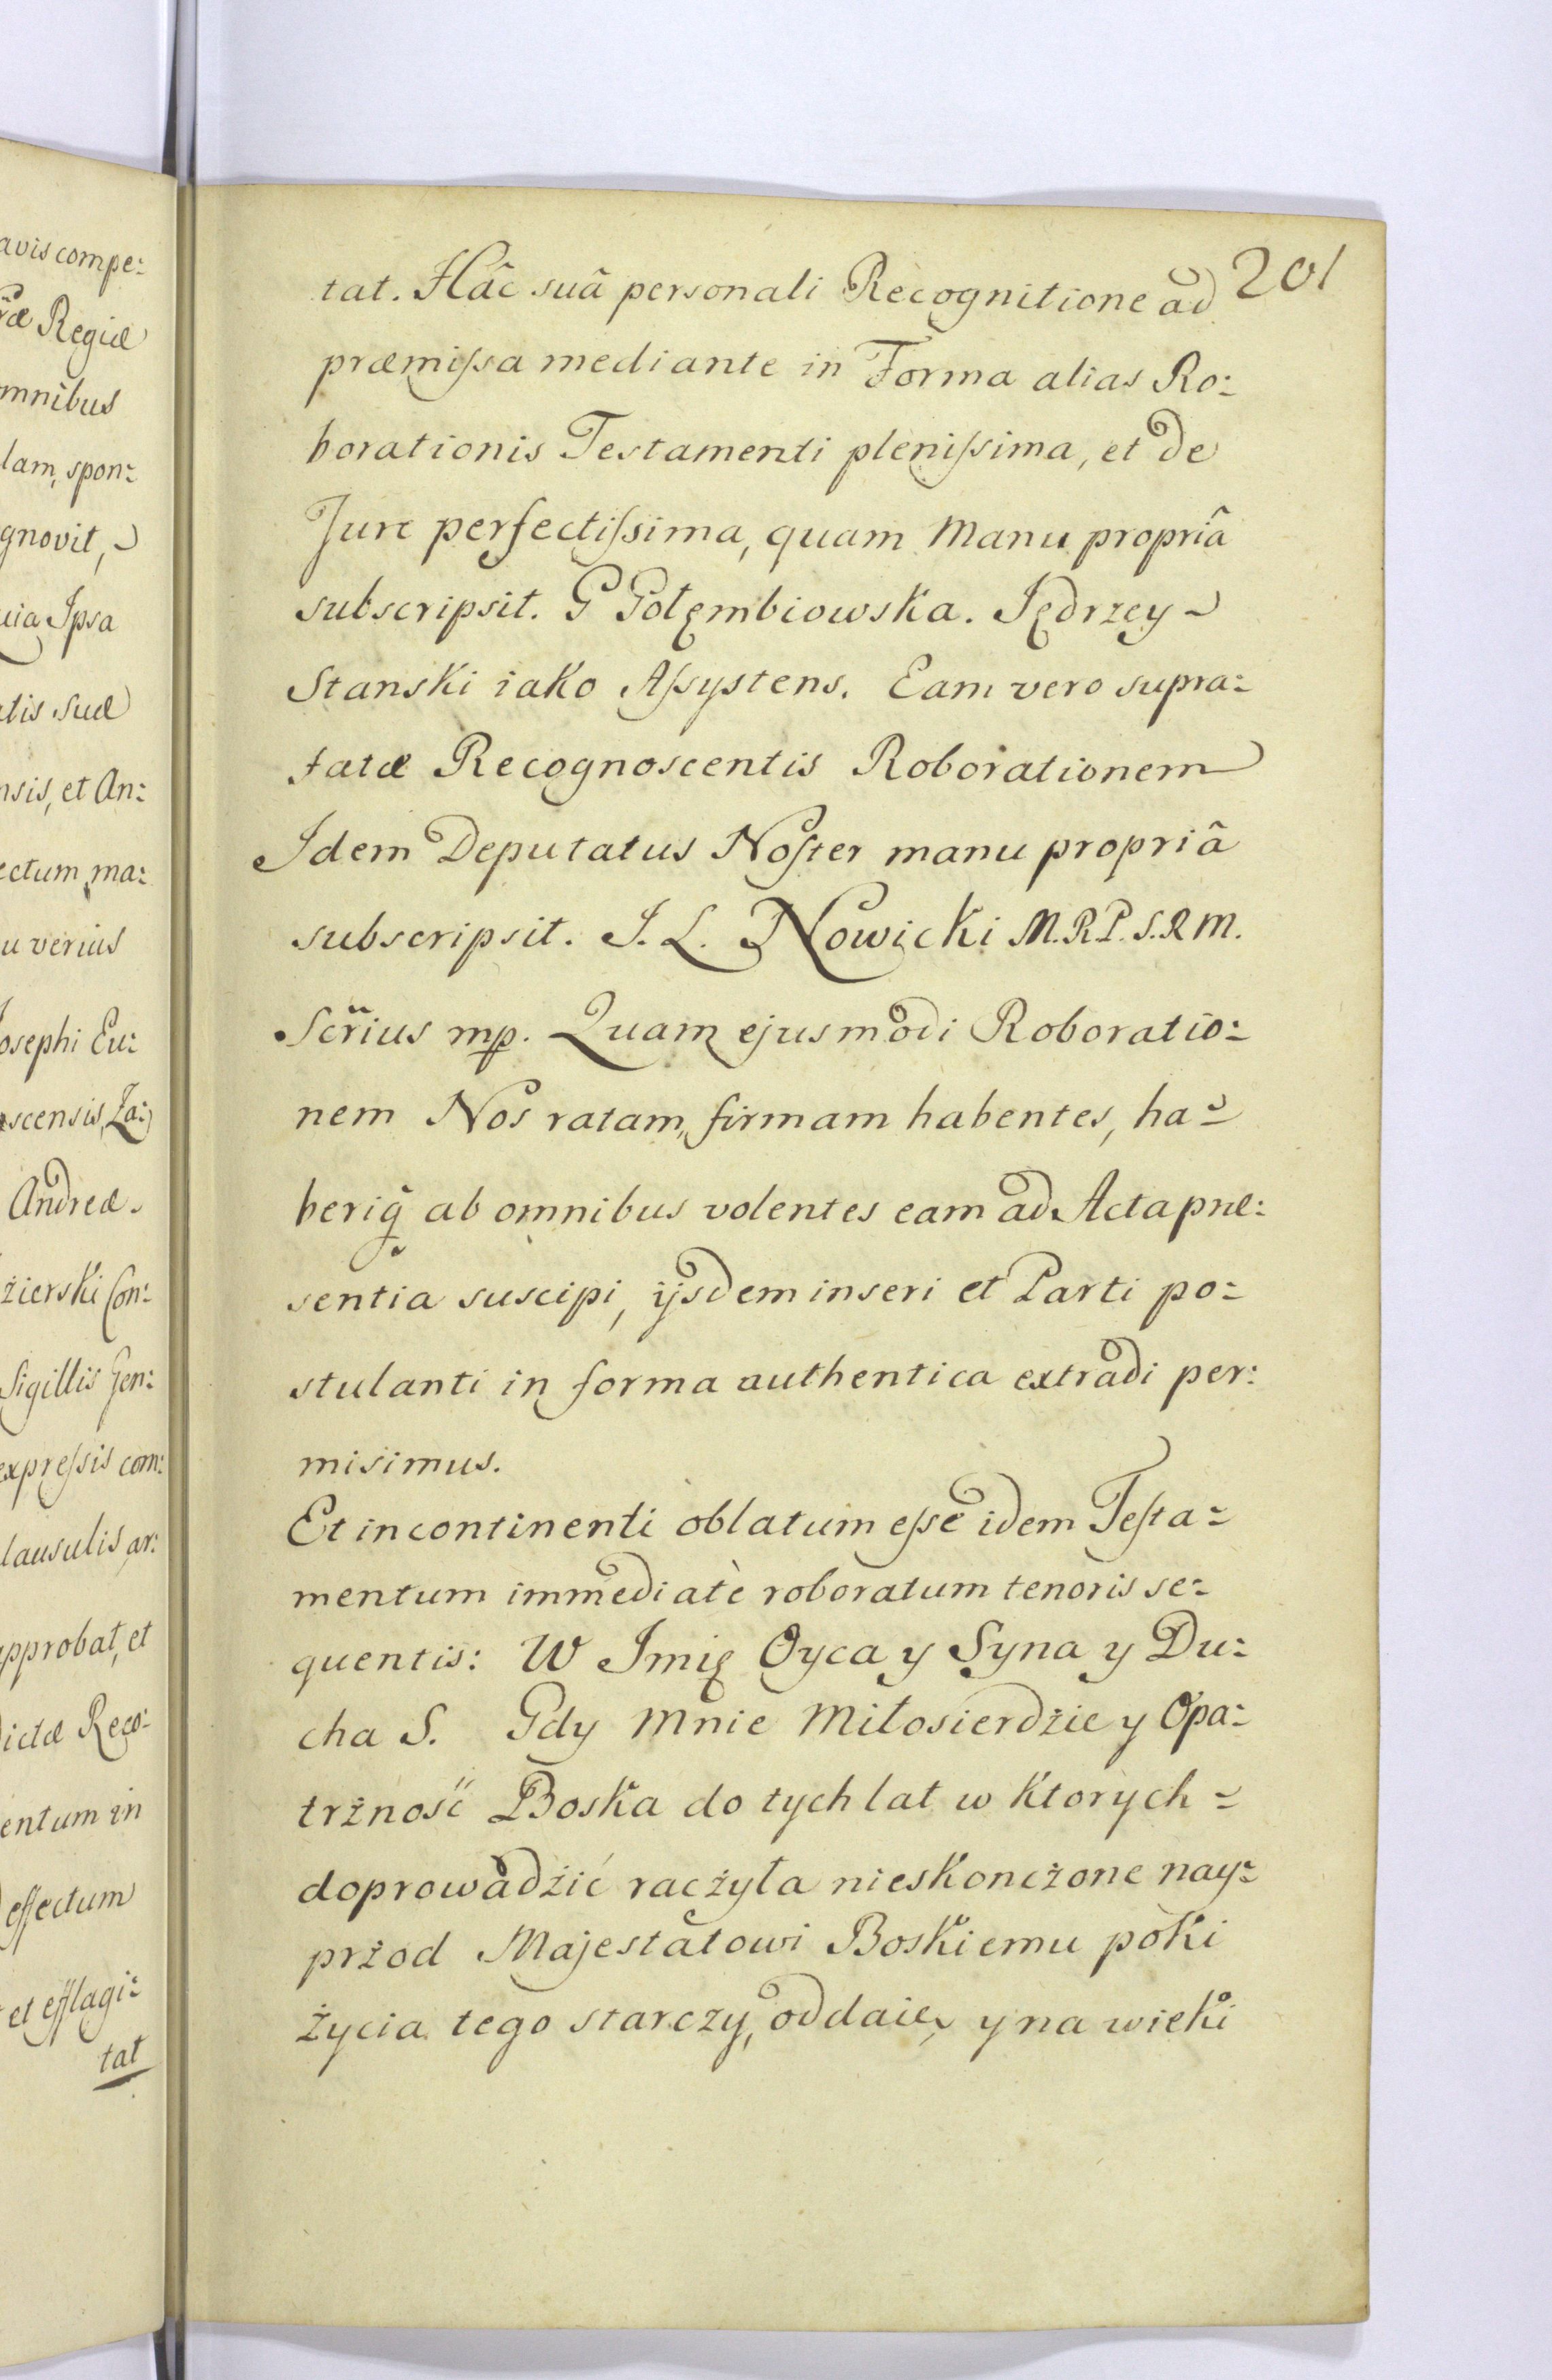 avis compe:
ræ Regiæ
omnibus
lam, spon:
gnovit,
uia Ipsa
tis suæ
nsis, et An:
ectum ma:
u verius
osephi Eu:
scensis, Za:
Andreæ.
zierski Con:
Sigillis Gen:
expreſsis com:
lausulis ar:
approbat, et
dictæ Reco:
entum in
effectum
et efflagi:
tat
201
tat. Hâc suâ personali Recognitione ad
præmiſsa mediante in Forma alias Ro:
borationis Testamenti pleniſsima, et de
Jure perfectiſsima, quam Manu propriâ
subscripsit. G Gołęmbiowska. Jędrzey
Stanski iako Aſsystens. Eam vero supra:
fatæ Recognoscentis Roborationem
Idem Deputatus Noſter manu propriâ
subscripsit. J. L. Nowicki M.R.P. S.R.M.
Scrius mp. Quam ejusmodi Roboratio:
nem Nos ratam, firmam habentes, ha:
beriq̃ ab omnibus volentes eam ad Acta præ:
sentia suscipi, ijsdem inseri et Parti po:
stulanti in forma authentica extradi per:
misimus.
Et in continenti oblatum eſse idem Teſta:
mentum immediatè roboratum tenoris se:
quentis: W Imię Oyca y Syna y Du:
cha S. Gdy Mnie Miłosierdżie y Opa:
trżność Boska do tych lat w ktorych
doprowadżić raczżyła nieskonczżone nay:
prżod Majestatowi Boskiemu póki
życia tego starczy, oddaię, y na wieki